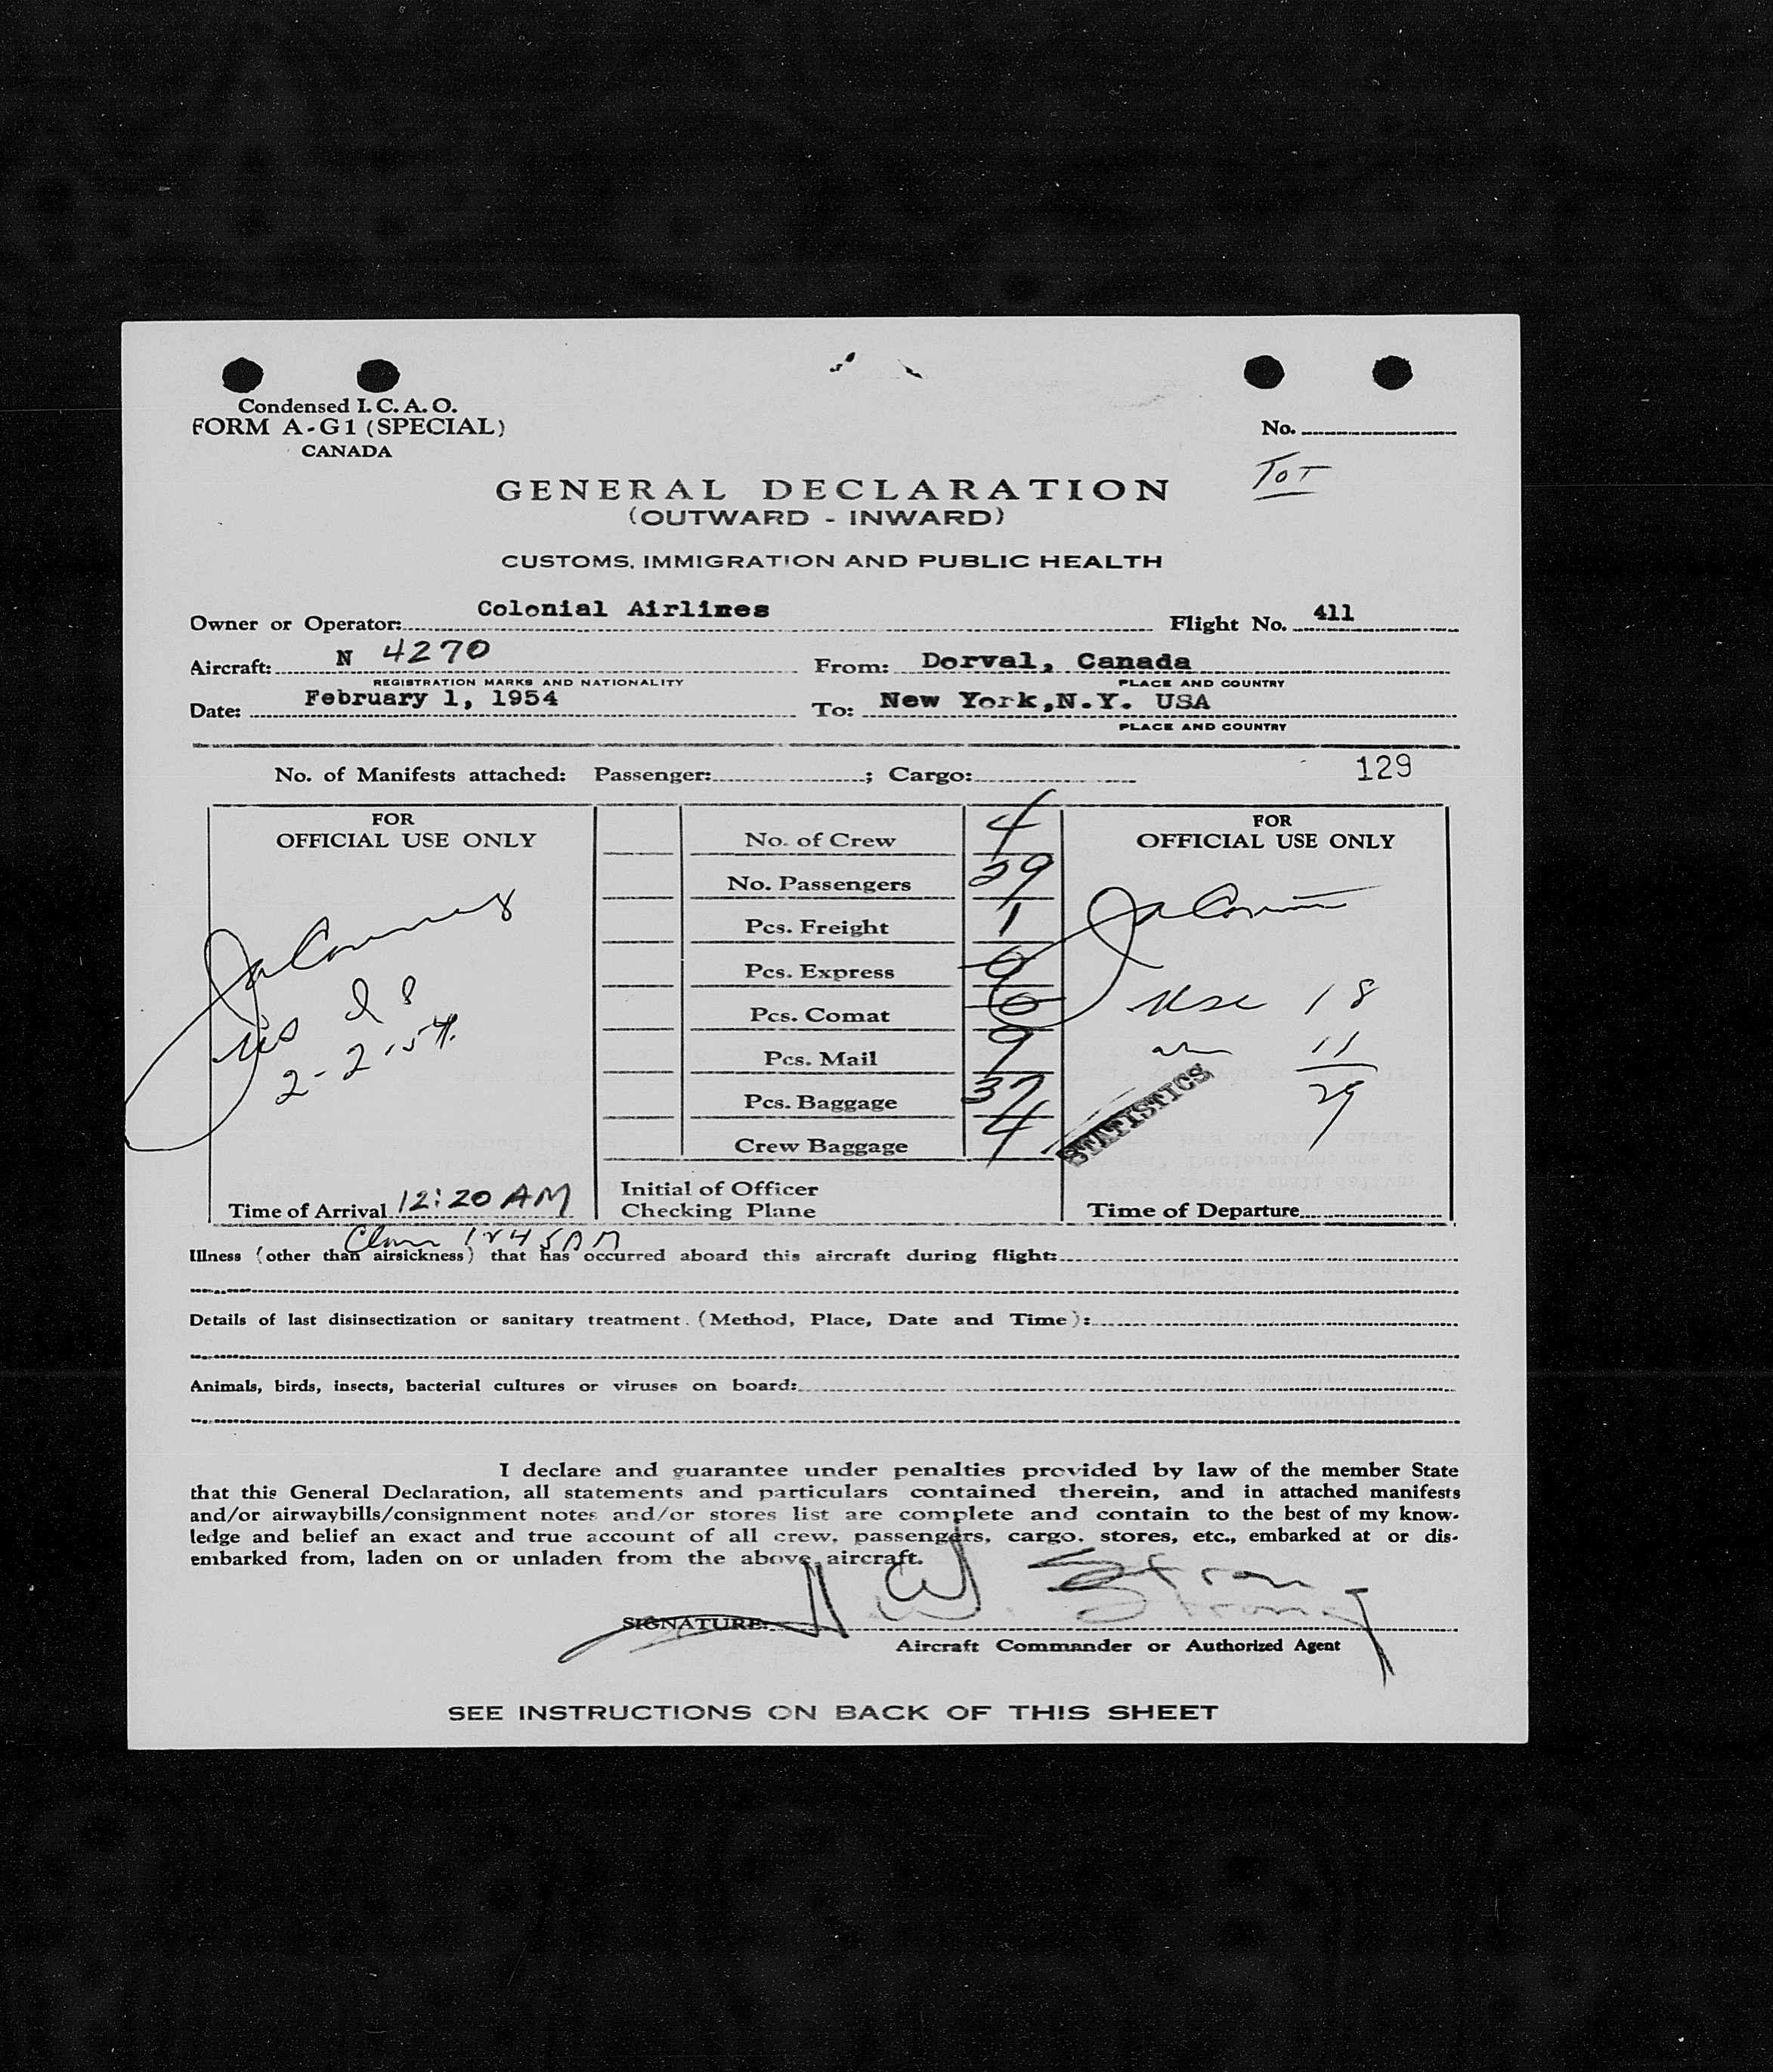 Condensed I.C.A.O.
FORM A-G1 (SPECIAL)
CANADA
No.
TOT
GENERAL DECLARATION
(OUTWARD - INWARD)
CUSTOMS, IMMIGRATION AND PUBLIC HEALTH
Owner or Operator: Colonial Airlines Flight No. 411
Aircraft: N 4270 From: Dorval, Canada
REGISTRATION MARKS AND NATIONALITY PLACE AND COUNTRY
Date: February 1, 1954 To: New York,N.Y. USA
PLACE AND COUNTRY
No. of Manifests attached: Passenger: ; Cargo: 129
FOR
OFFICIAL USE ONLY
2-2-54
Time of Arrival 12:20 AM
No. of Crew 4
No. Passengers 29
Pcs. Freight 1
Pcs. Express 0
Pcs. Comat 0
Pcs. Mail 9
Pcs. Baggage 37
Crew Baggage 4
Initial of Officer
Checking Plane
FOR
OFFICIAL USE ONLY
usc 18
11
29
STATISTICS
Time of Departure
Illness (other than airsickness) that has occurred aboard this aircraft during flight:
Details of last disinsectization or sanitary treatment. (Method, Place, Date and Time):
Animals, birds, insects, bacterial cultures or viruses on board:
I declare and guarantee under penalties provided by law of the member State
that this General Declaration, all statements and particulars contained therein, and in attached manifests
and/or airwaybills/consignment notes and/or stores list are complete and contain to the best of my know-
ledge and belief an exact and true account of all crew, passengers, cargo, stores, etc., embarked at or dis-
embarked from, laden on or unladen from the above aircraft.
SIGNATURE:
Aircraft Commander or Authorized Agent
SEE INSTRUCTIONS ON BACK OF THIS SHEET